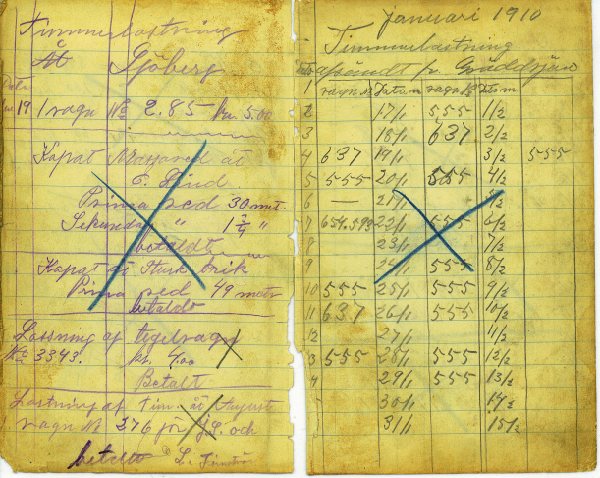 Timmerlastning
Åt Sjöberg
Data
19 1 vagn No 2.85 kr. 5.00
Kapat Massaved åt
E. Lind
Prima ved 30 mtr.
Sekunda " 1 3/4 "
betaldt
Kapat åt
Prima ved 49 metr
betaldt
Lossning af tegelvagn
No 3343. kr. 4,00
Betalt
Lastning af tim. åt August
1 vagn N 376 för J.S. och
betaldt L.
januari 1910
Timmerlastning
afsändt fr. Gräddsjön
1 vagn N Datum vagn N Datum
2 17/1 555 1/2
3 18/1 637 2/2
4 637 19/1 3/2 555
5 555 20/1 555 4/2
6 — 21/1 5/2
7 654.593 22/1 555 6/2
8 23/1 7/2
9 24/1 555 8/2
10 555 25/1 555 9/2
11 637 26/1 555 10/2
12 27/1 11/2
3 555 28/1 555 12/2
4 29/1 555 13/2
30/1 14/2
31/1 15/2